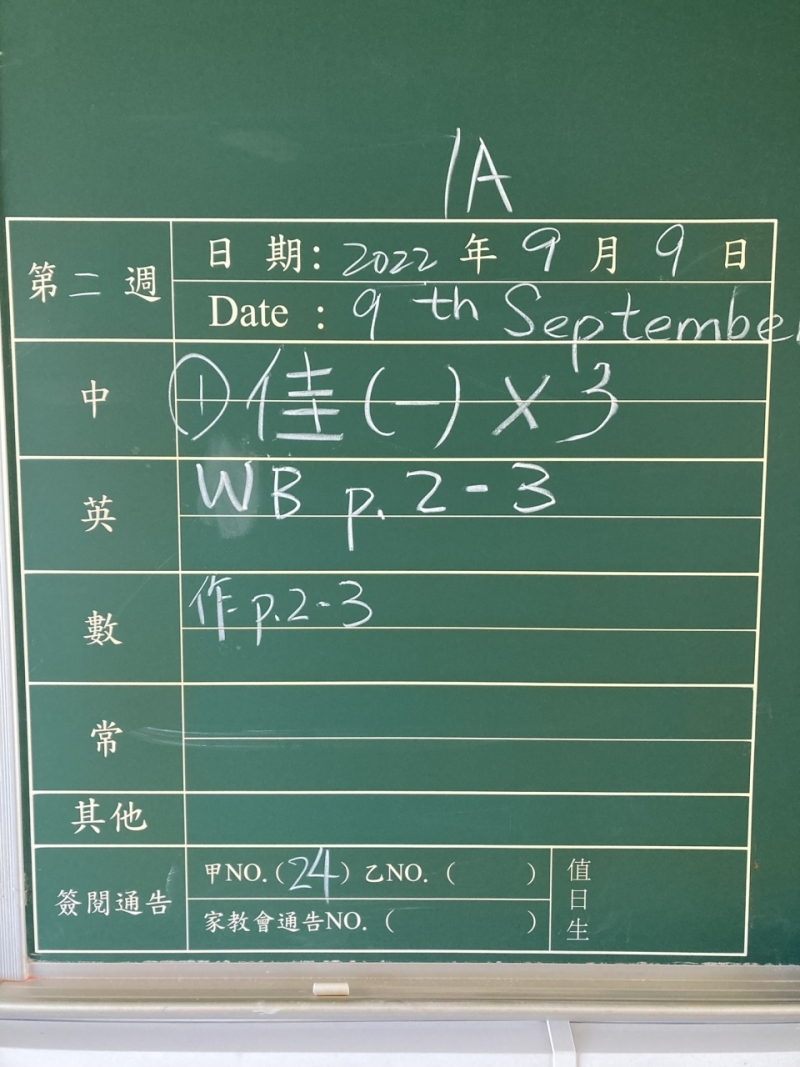 1A
第二週
日期: 2022 年 9 月 9 日
Date : 9 th September
中
① 佳 (一) × 3
英
WB p. 2-3
數
作 p.2-3
常
其他
簽閱通告
甲NO.(24) 乙NO. ( )
家教會通告NO. ( )
值日生